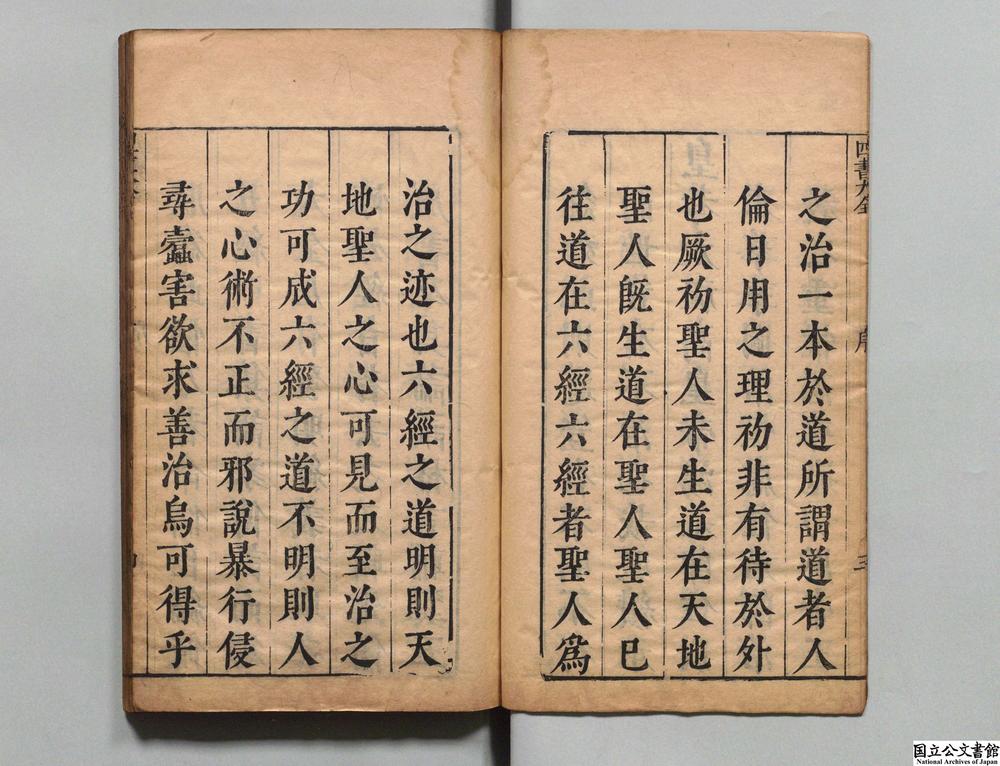 之治一本於道所謂道者人
倫日用之理初非有待於外
也厥初聖人未生道在天地
聖人旣生道在聖人聖人已
往道在六經六經者聖人爲
治之迹也六經之道明則天
地聖人之心可見而至治之
功可成六經之道不明則人
之心術不正而邪說暴行侵
尋蠹害欲求善治烏可得乎
四書大全
序
三
国立公文書館
National Archives of Japan